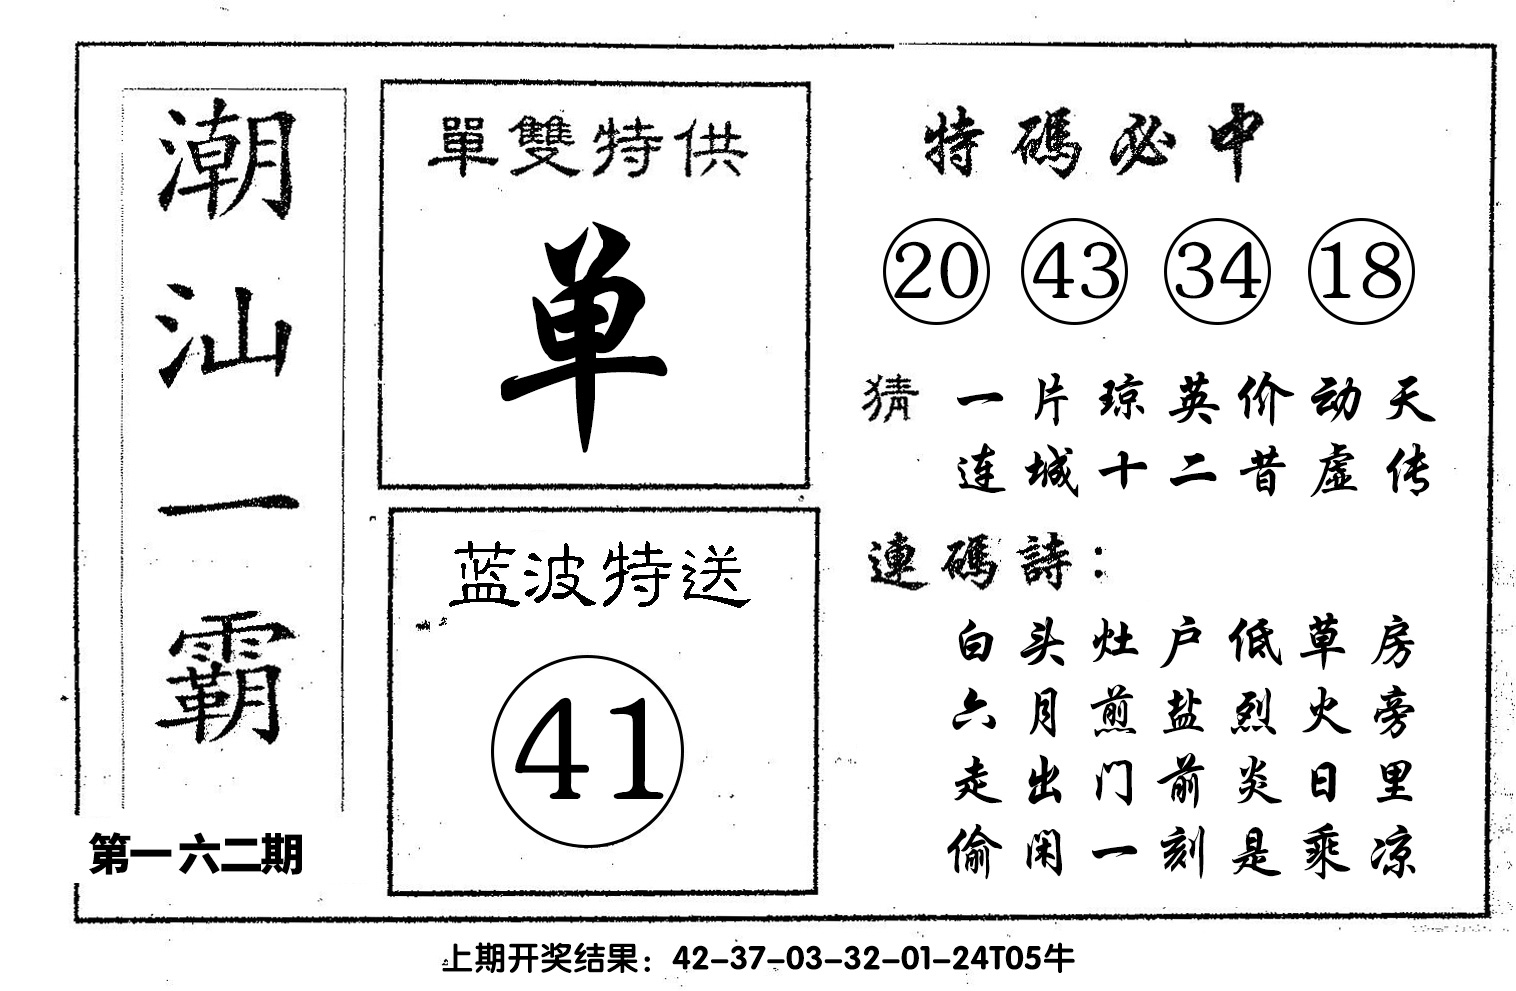 潮汕一霸
第一六二期
單雙特供
单
蓝波特送
41
特碼必中
20 43 34 18
猜 一片琼英价动天
连城十二昔虚传
連碼詩：
白头灶户低草房
六月煎盐烈火旁
走出门前炎日里
偷闲一刻是乘凉
上期开奖结果：42-37-03-32-01-24T05牛